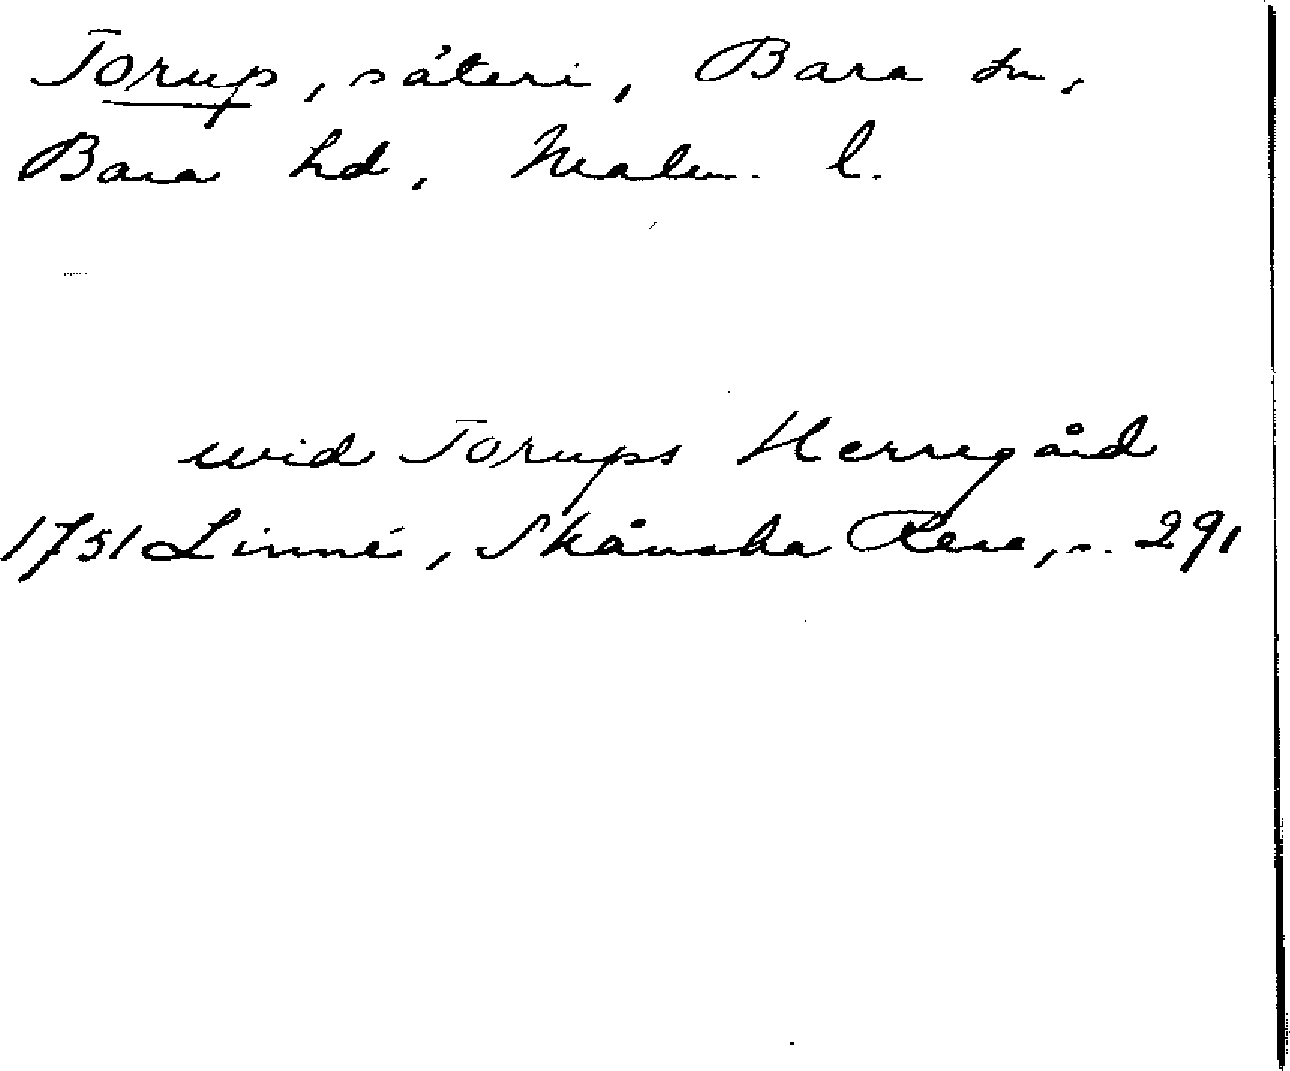 Torup, säteri, Bara sn,
Bara hd, Malm. l.
wid Torups Herregård
1751 Linné, Skånska Resa, s. 291